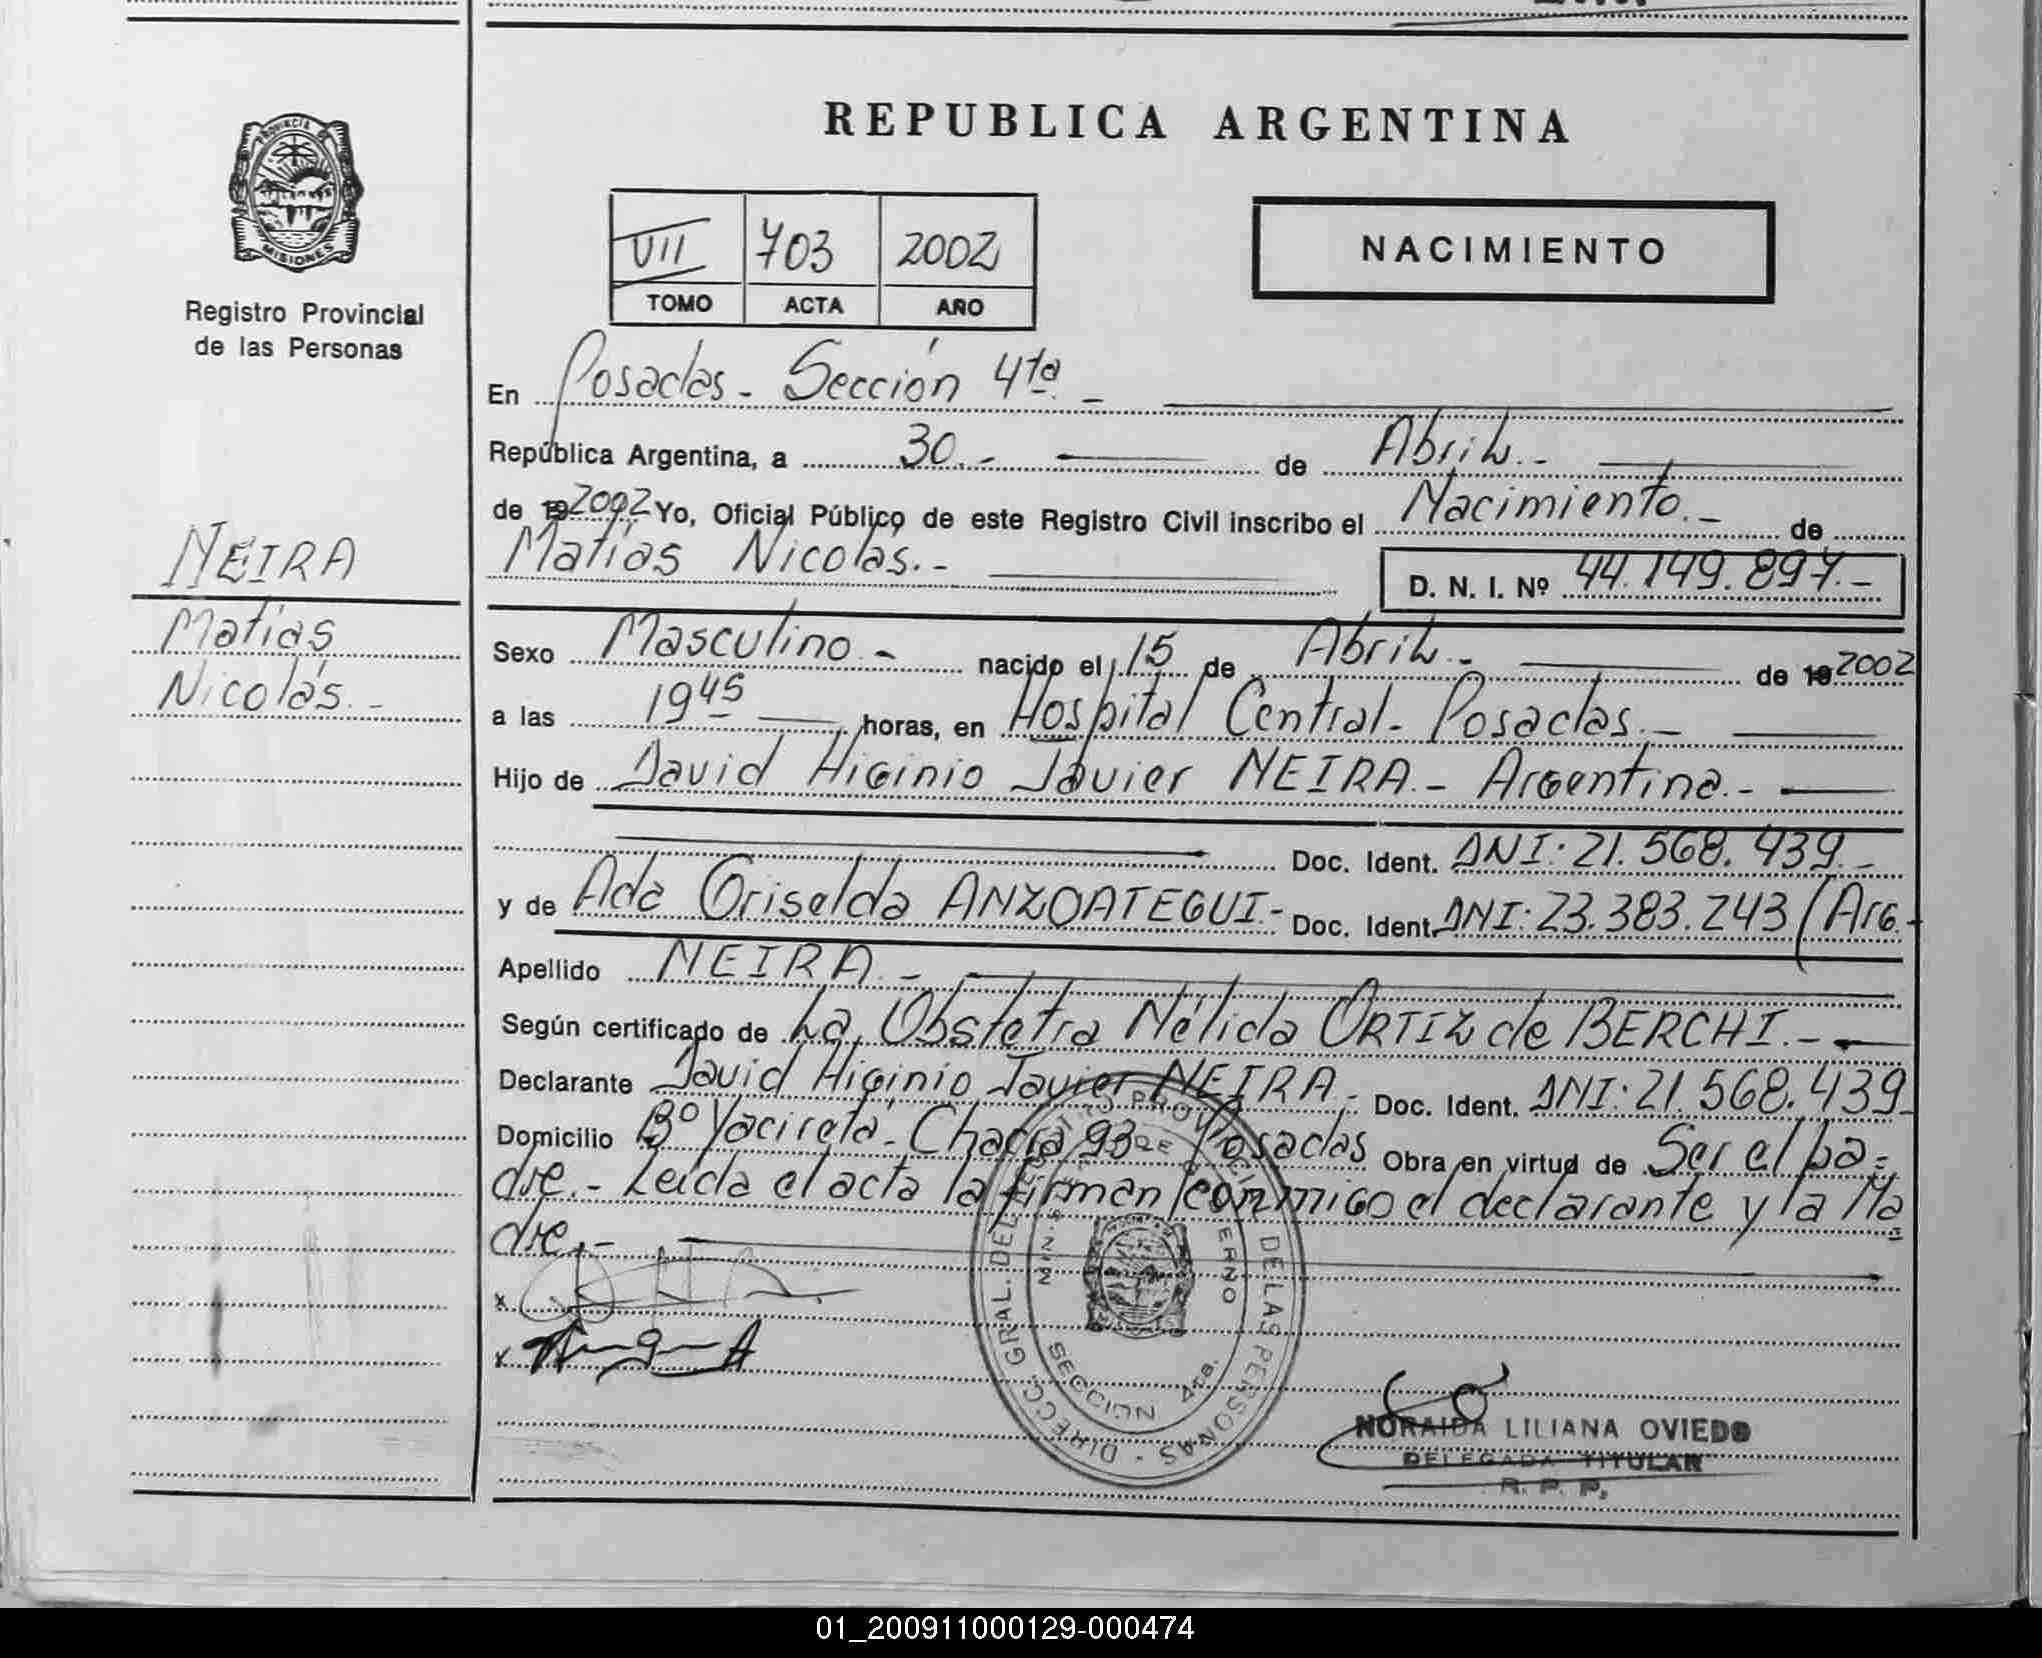 REPUBLICA ARGENTINA
PROVINCIA DE
MISIONES
Registro Provincial
de las Personas
VII 703 2002
TOMO ACTA AÑO
NACIMIENTO
En Posadas - Sección 4ta. -
República Argentina, a 30.- de Abril.-
de 19 2002 Yo, Oficial Público de este Registro Civil inscribo el Nacimiento.- de
Matías Nicolás.- D. N. I. Nº 44.149.897.-
NEIRA
Matías
Nicolás.-
Sexo Masculino.- nacido el 15 de Abril.- de 19 2002
a las 19 45 horas, en Hospital Central - Posadas.-
Hijo de David Higinio Javier NEIRA.- Argentina.-
Doc. Ident. DNI: 21.568.439.-
y de Ada Griselda ANZOATEGUI.- Doc. Ident. DNI: 23.383.243 (Arg.-
Apellido NEIRA.-
Según certificado de La Obstetra Nélida ORTIZ de BERCHI.-
Declarante David Higinio Javier NEIRA.- Doc. Ident. DNI: 21.568.439
Domicilio Bº Yacireta - Chacra 93 - Posadas Obra en virtud de Ser el pa=
dre.- Leida el acta la firman conmigo el declarante y la Ma=
dre.-
x
x
DIRECC. GRAL. DEL REGISTRO PROVINCIAL DE LAS PERSONAS
SECCION 4ta.
NORAIDA LILIANA OVIEDO
DELEGADA TITULAR
R. P. P.
01_200911000129-000474